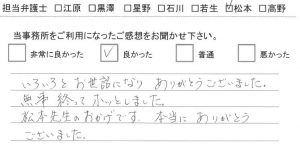 担当弁護士 □江原 □黒澤 □星野 □石川 □若生 ☑松本 □高野
当事務所をご利用になったご感想をお聞かせ下さい。
□ 非常に良かった ☑ 良かった □ 普通 □ 悪かった
いろいろと お世話になり ありがとうございました。
無事 終って ホッとしました。
松本先生のおかげです 本当に ありがとう
ございました。